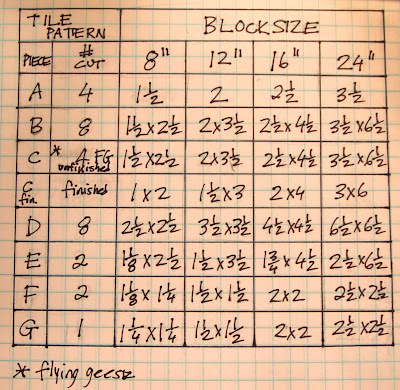 TILE PATTERN BLOCKSIZE
PIECE # CUT 8" 12" 16" 24"
A 4 1½ 2 2½ 3½
B 8 1½x2½ 2x3½ 2½x4½ 3½x6½
C * 4 FG unfinished 1½x2½ 2x3½ 2½x4½ 3½x6½
C fin. finished 1x2 1½x3 2x4 3x6
D 8 2½x2½ 3½x3½ 4½x4½ 6½x6½
E 2 1⅛x2½ 1½x3½ 1¾x4½ 2½x6½
F 2 1⅛x1¼ 1½x1½ 2x2 2½x2½
G 1 1¼x1¼ 1½x1½ 2x2 2½x2½
* flying geese